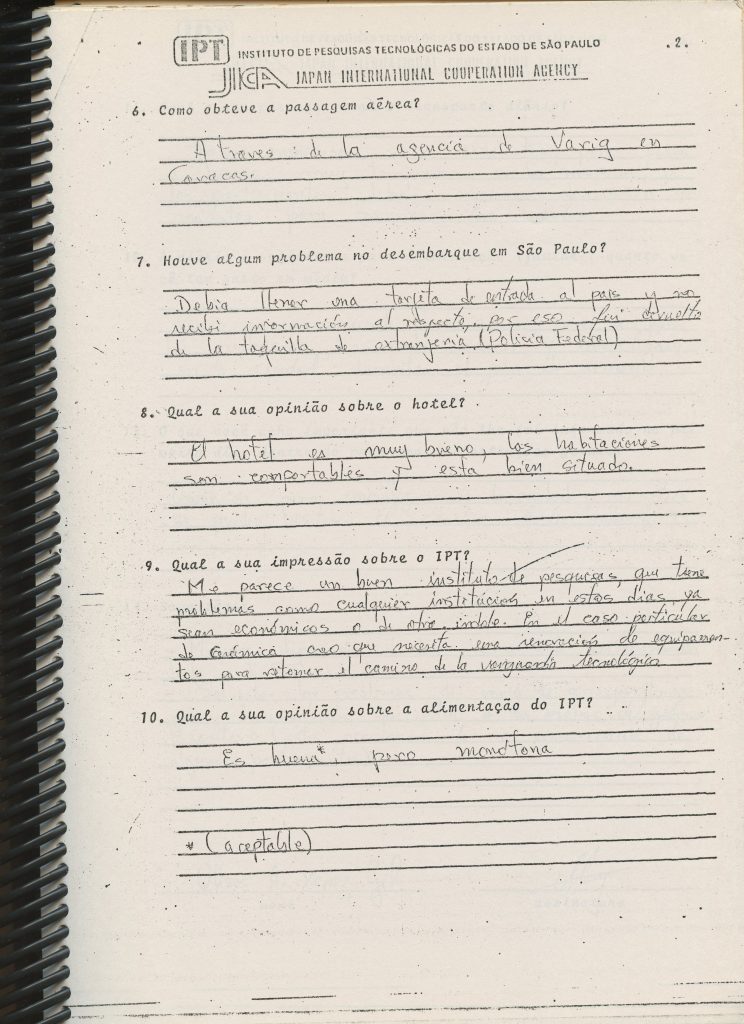 IPT INSTITUTO DE PESQUISAS TECNOLÓGICAS DO ESTADO DE SÃO PAULO .2.
JICA JAPAN INTERNATIONAL COOPERATION AGENCY
6. Como obteve a passagem aérea?
A traves de la agencia de Varig en
Caracas.
7. Houve algum problema no desembarque em São Paulo?
Debia llenar una tarjeta de entrada al país y no
recibi información al respecto, por eso fui devuelto
de la taquilla de extranjeria (Policia Federal)
8. Qual a sua opinião sobre o hotel?
El hotel es muy bueno, las habitaciones
son comportables y esta bien situado.
9. Qual a sua impressão sobre o IPT?
Me parece un buen instituto de pesquisas, que tiene
problemas como cualquier institución en estos dias, ya
sean económicos o de otra indole. En el caso particular
de Cerámica creo que necesita una renovación de equipamen-
tos para retomar el camino de la vanguardia tecnológica
10. Qual a sua opinião sobre a alimentação do IPT?
Es buena*, pero monótona
* (aceptable)